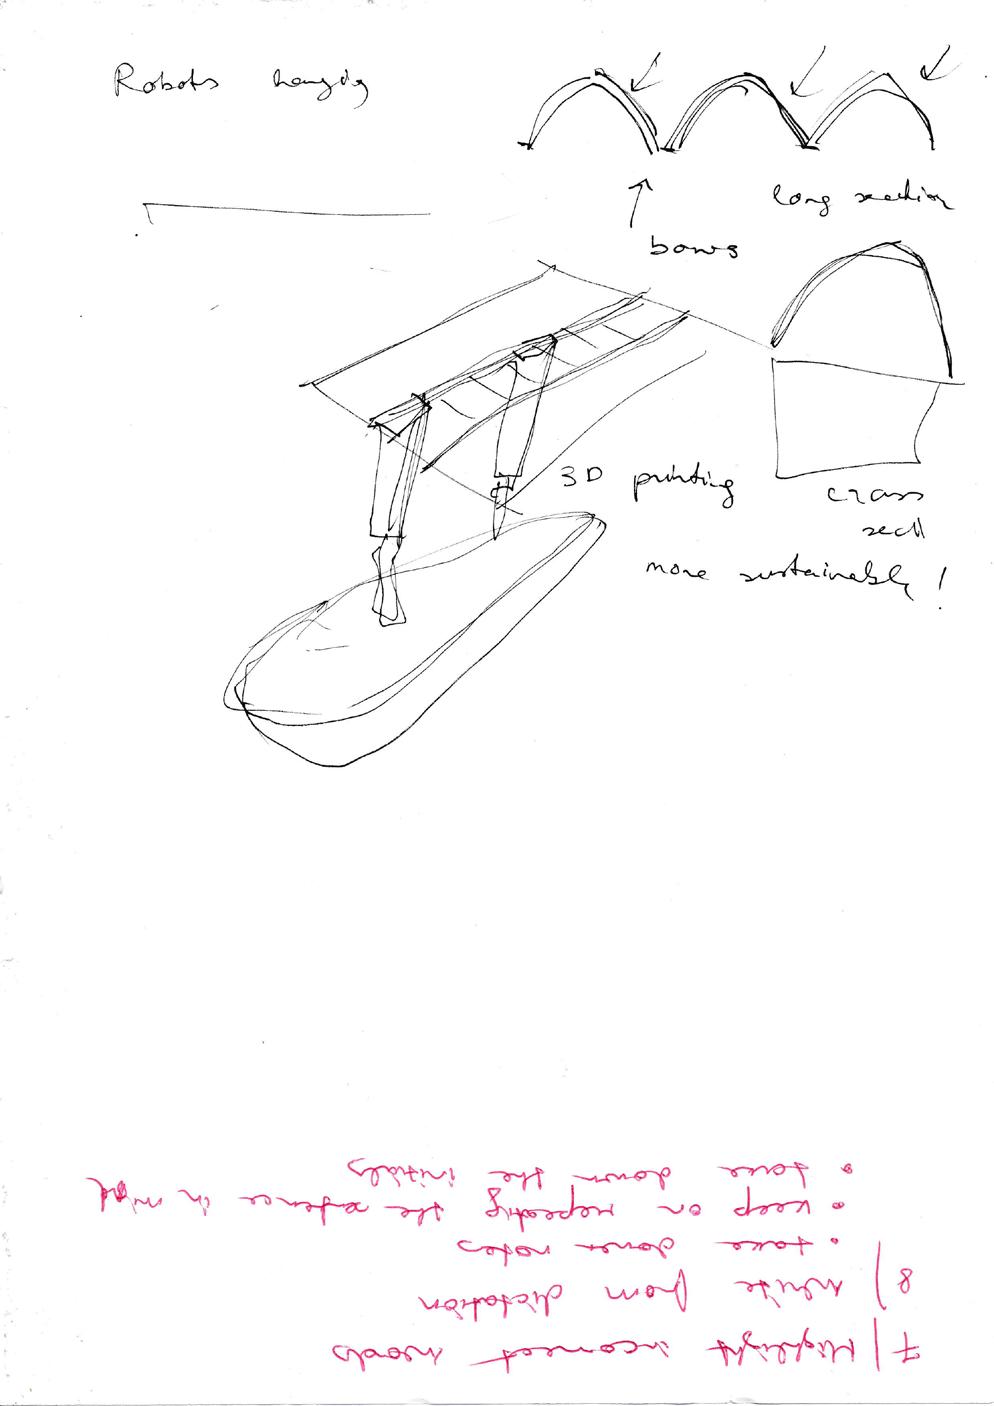 Robots hanging
long section
bows
3D printing
cross
sect
more sustainably!
7) Highlight incorrect words
8) write from dictation
• take down notes
• keep on repeating the sentence in mind
• take down the initials